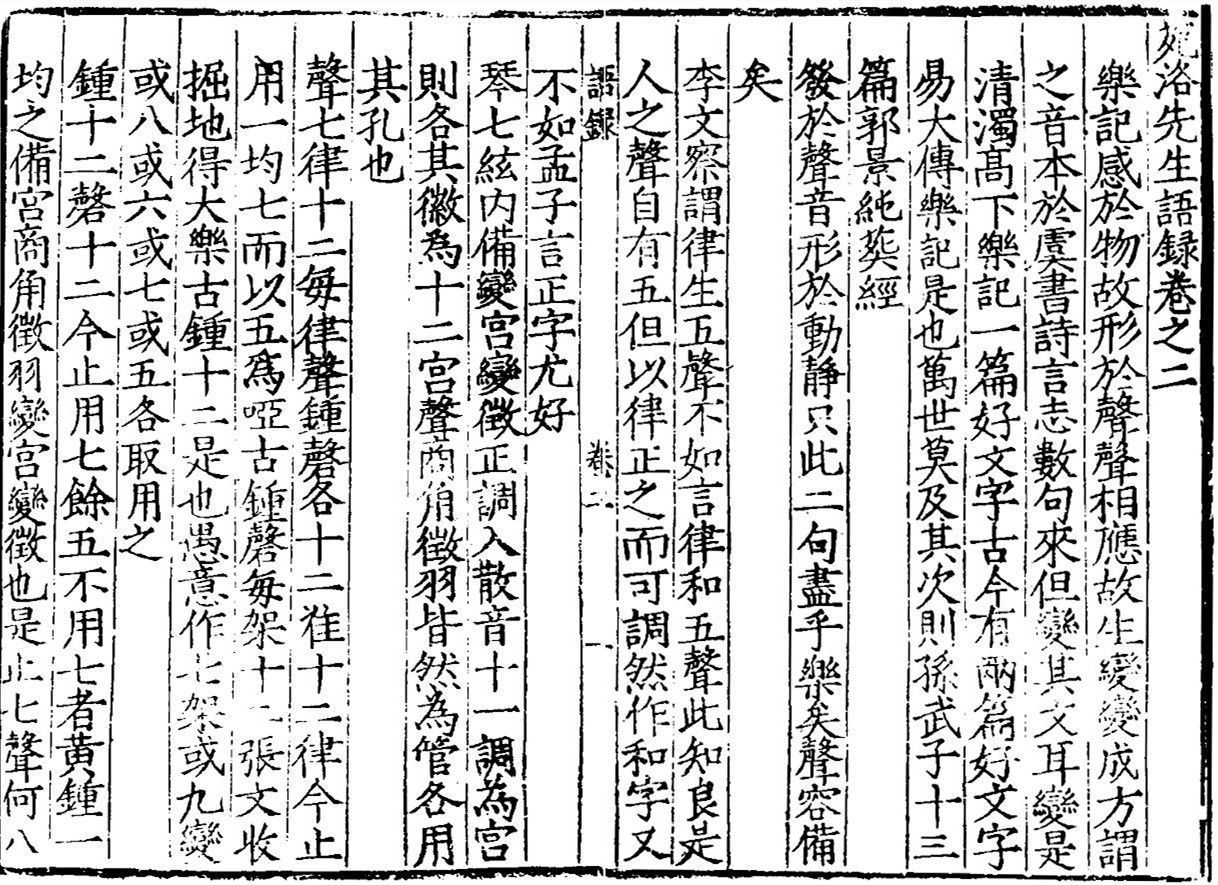 苑洛先生語録卷之二
樂記感於物故形於聲聲相應故生變變成方謂
之音本於虞書詩言志數句來但變其文耳變是
清濁髙下樂記一篇好文字古今有兩篇好文字
易大傳樂記是也萬世莫及其次則孫武子十三
篇郭景純葬經
發於聲音形於動静只此二句盡乎樂矣聲容備
矣
李文察謂律生五聲不如言律和五聲此知良是
人之聲自有五但以律正之而可調然作和字又
語録 卷二 一
不如孟子言正字尤好
琴七絃内備變宫變徵正調入散音十一調為宫
則各其徽為十二宫聲商角徵羽皆然為管各用
其孔也
聲七律十二毎律聲鍾磬各十二准十二律今止
用一均七而以五爲啞古鍾磬毎架十二張文收
掘地得大樂古鍾十二是也愚意作七架或九變
或八或六或七或五各取用之
鍾十二磬十二今止用七餘五不用七者黄鍾一
均之備宫商角徵羽變宫變徵也是止七聲何八